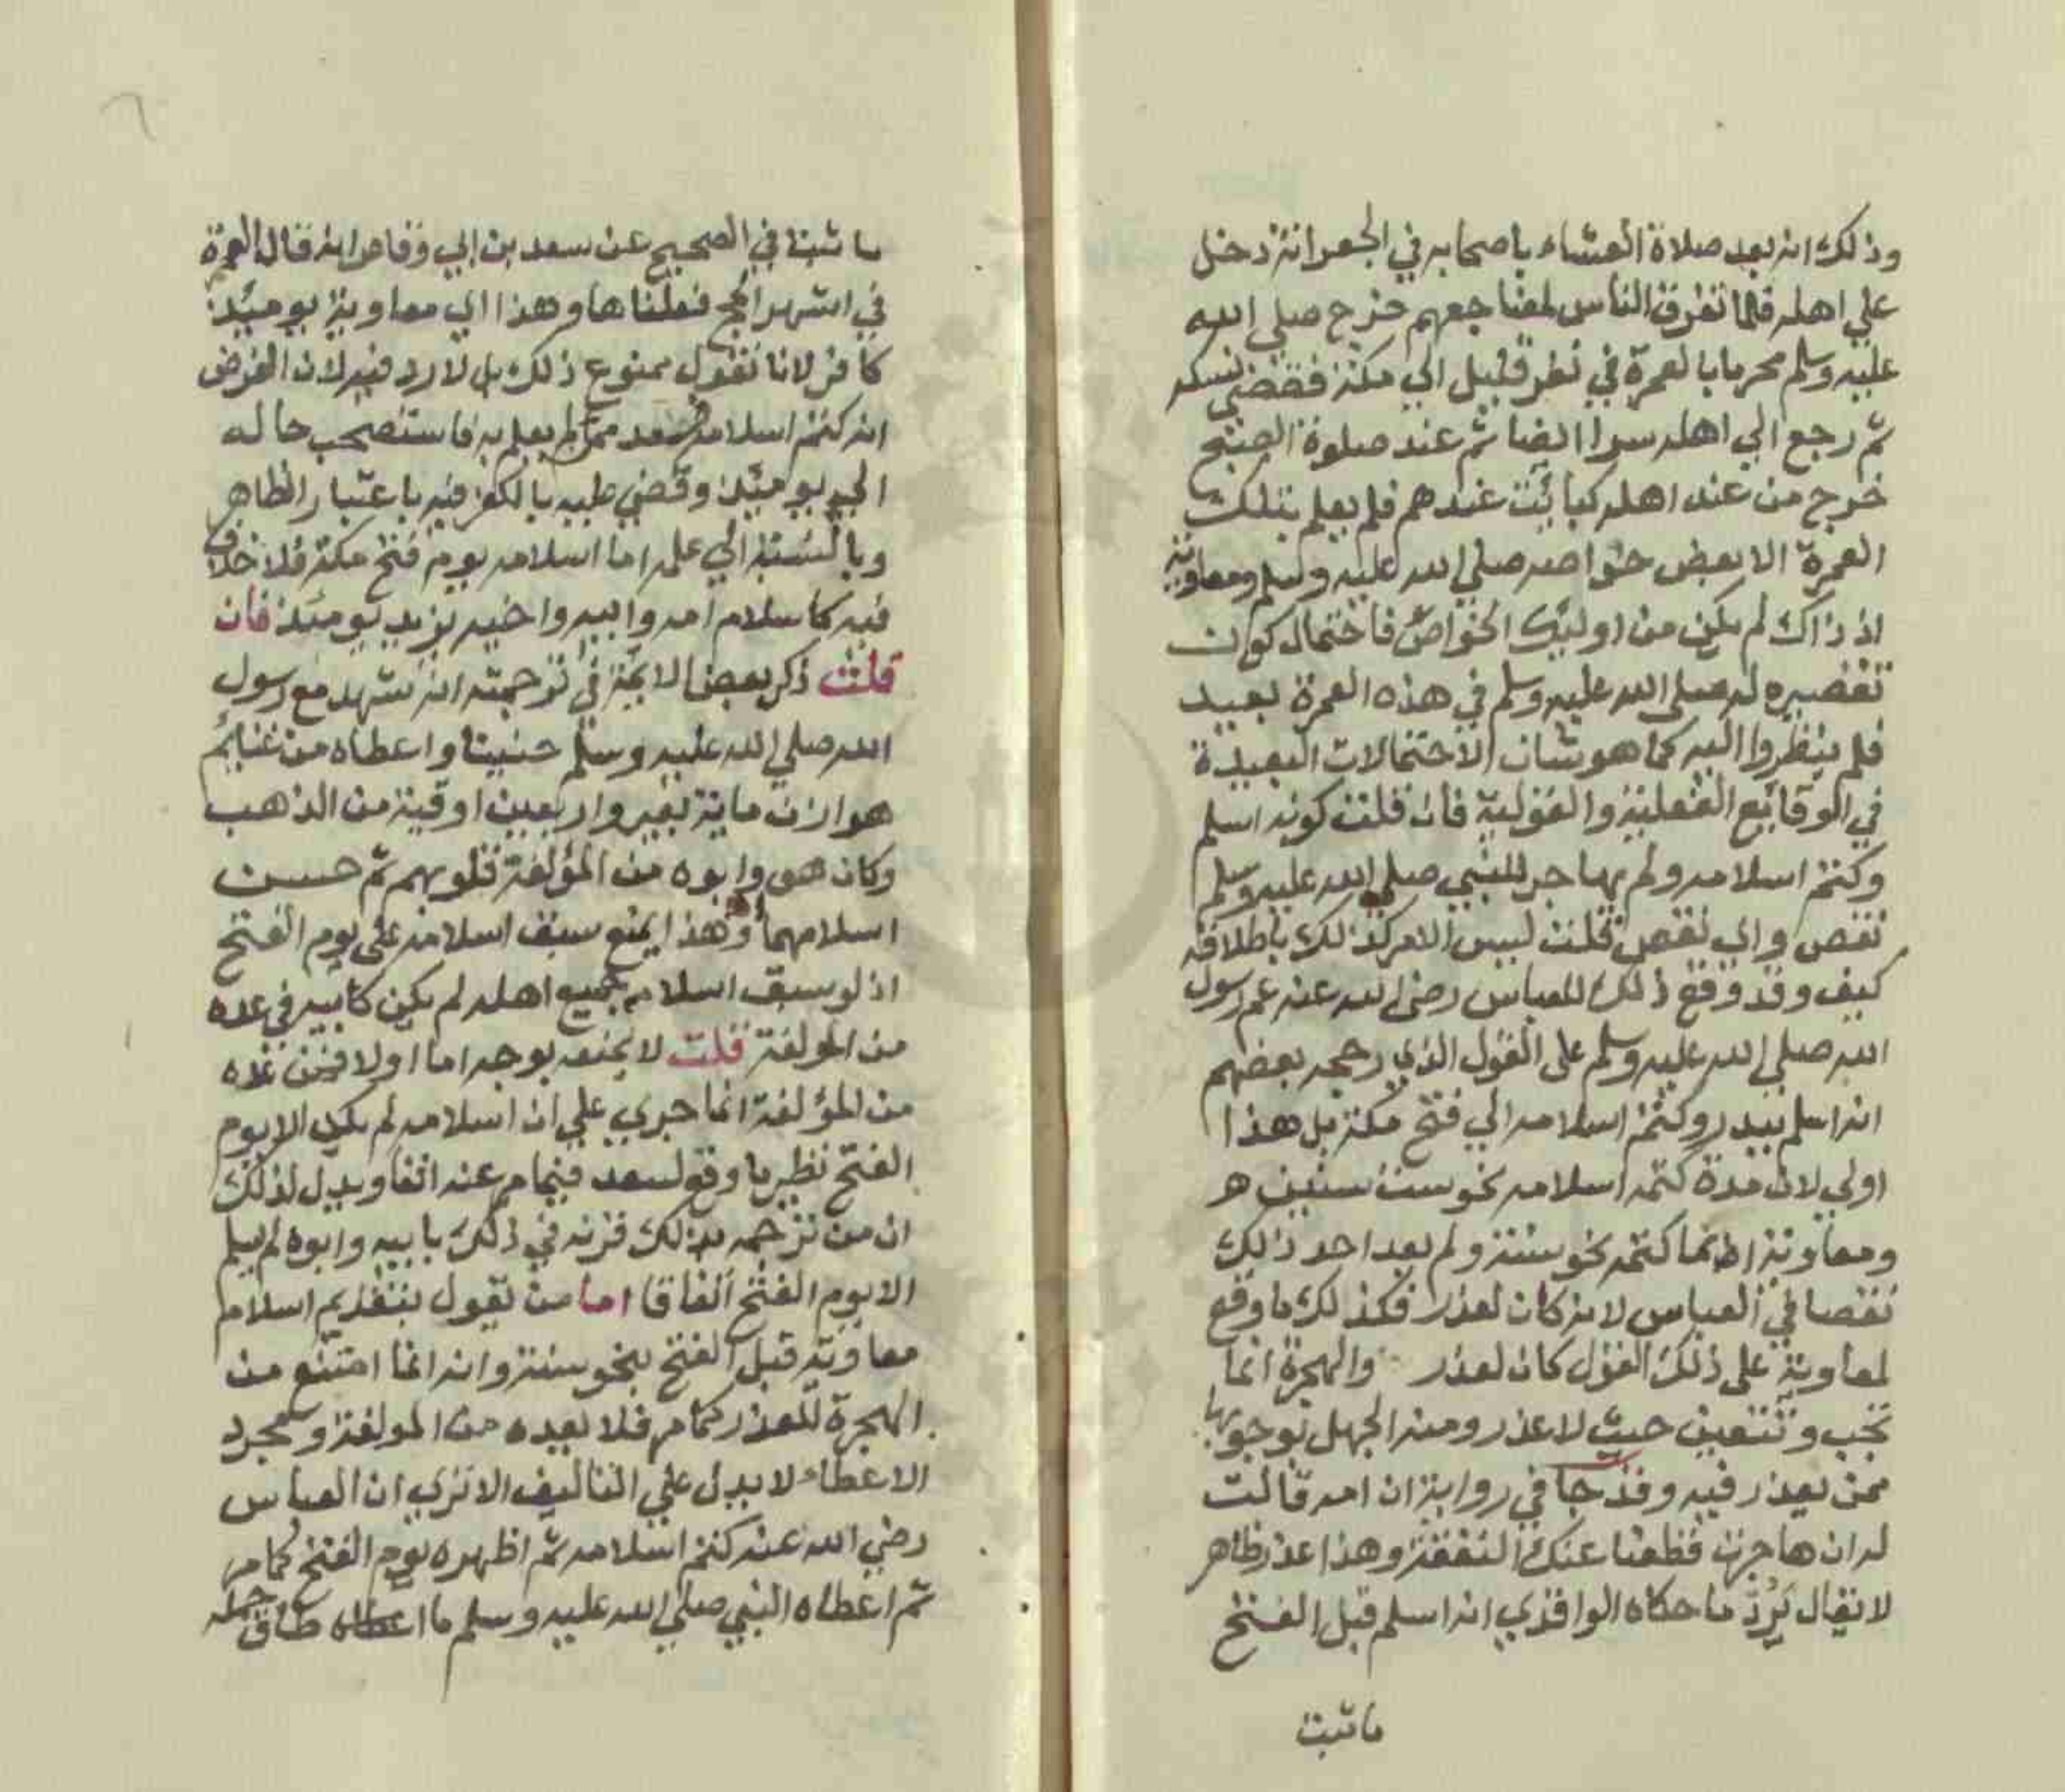 وذلك انه بعد صلاة العشاء باصحابه في الجعرانة دخل
علي اهله فلما تفرق الناس لمضاجعهم خرج صلي الله
عليه وسلم محرما بالعمرة في نفر قليل الي مكة فقضي نسكه
ثم رجع الي اهله سرا ايضا ثم عند صلوة الصبح
خرج من عند اهله كبائت عندهم فلم يعلم بتلك
العمرة الا بعض خواصه صلي الله عليه وسلم ومعاوية
اذ ذاك لم يكن من اوليك الخواص فاحتمال كون
تقصيره له صلي الله عليه وسلم في هذه العمرة بعيد
فلم ينظروا اليه كما هو شان الاحتمالات البعيدة
في الوقائع الفعلية والقولية فان قلت كونه اسلم
وكتم اسلامه ولم يهاجر للنبي صلي الله عليه وسلم
نقص واي نقص قلت ليس الامر كذلك باطلاقه
كيف وقد وقع ذلك للعباس رضي الله عنه عم رسول
الله صلي الله عليه وسلم على القول الذي رجحه بعضهم
انه اسلم ببدر وكتم اسلامه الي فتح مكة بل هذا
اولي لان مدة كتمه اسلامه نحو ست سنين
ومعاوية انما كتمه نحو سنة ولم يعد احد ذلك
نقصا في العباس لانه كان لعذر فكذلك ما وقع
لمعاوية على ذلك القول كان لعذر والهجرة انما
تجب وتتعين حيث لا عذر ومنه الجهل بوجوبها
ممن يعذر فيه وقد جا في رواية ان امه قالت
له ان هاجرت قطعنا عنك النفقة وهذا عذر ظاهر
لا يقال يرد ما حكاه الواقدي انه اسلم قبل الفتح
ما ثبت
ما ثبت في الصحيح عن سعد بن ابي وقاص انه قال العمرة
في اشهر الحج فعلناها وهذا اي معاوية يوميئذ
كافر لانا نقول ممنوع ذلك بل لا رد فيه لان الفرض
انه كتم اسلامه فسعد ممن لم يعلم به فاستصحب حاله
الي يوميئذ وقضي عليه بالكفر فيه باعتبار الظاهر
وبالنسبة الي علمه اما اسلامه يوم فتح مكة فلا خلاف
فيه كاسلام امه وابيه واخيه يزيد يومئذ فان
قلت ذكر بعض الايمة في ترجمته انه شهد مع رسول
الله صلي الله عليه وسلم حنينا واعطاه من غنائم
هوازن ماية بعير واربعين اوقية من الذهب
وكان هو وابوه من المؤلفة قلوبهم ثم حسن
اسلامهما وهذا يمنع سبق اسلامه على يوم الفتح
اذ لو سبق اسلامه جميع اهله لم يكن كابيه في عده
من المولفة قلت لا يمنعه بوجه اما اولا فمن عده
من المؤلفة انما جري علي ان اسلامه لم يكن الا يوم
الفتح نظير ما وقع لسعد فيما مر عنه انفا ويدل لذلك
ان من ترجمه بذلك قرنه في ذلك بابيه وابوه لم يسلم
الا يوم الفتح اتفاقا اما من يقول بتقديم اسلام
معاوية قبل الفتح بنحو سنة وانه انما امتنع من
الهجرة للعذر كما مر فلا يعيده من المولفة ومجرد
الاعطاء لا يدل علي التاليف الا تري ان العباس
رضي الله عنه كتم اسلامه ثم اظهره يوم الفتح كما مر
ثم اعطاه النبي صلي الله عليه وسلم ما اطاق حمله